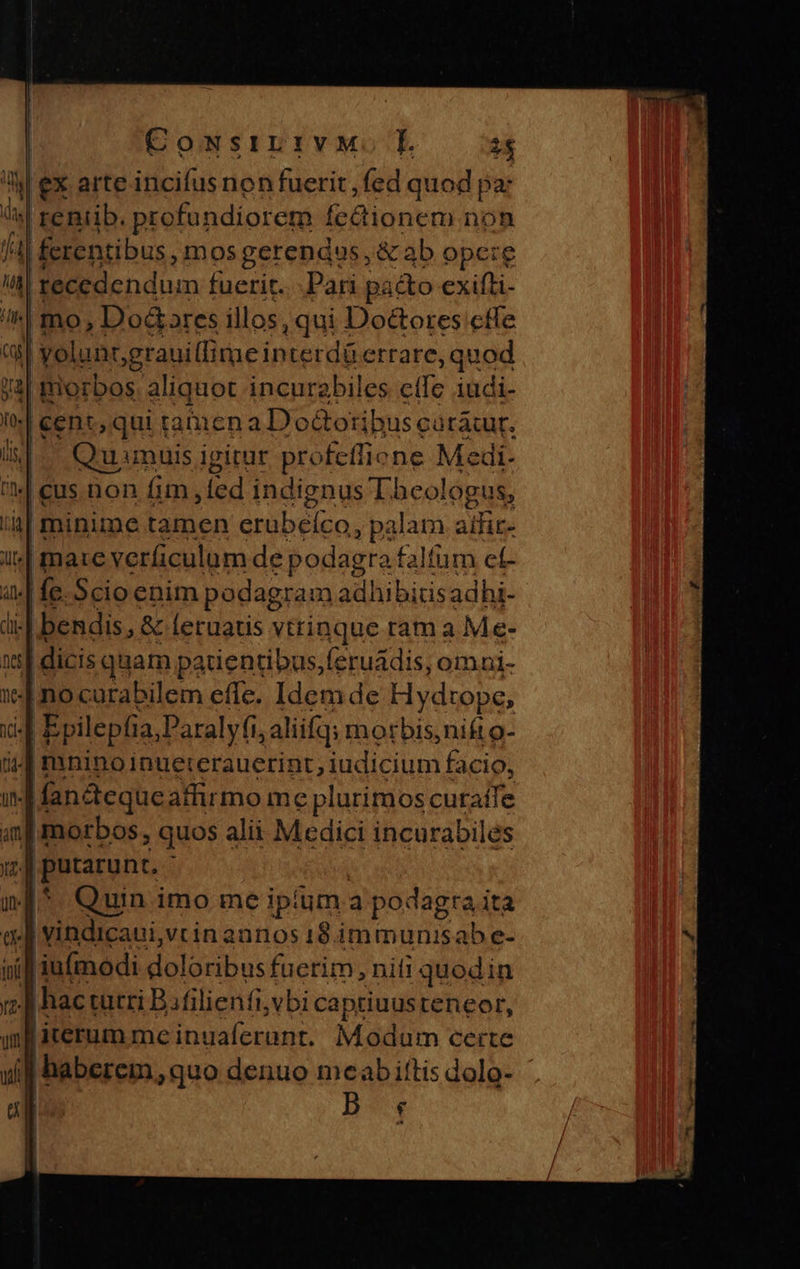 CONSILIVM. I. 25
ex arte incifus non fuerit, fed quod pa-
rentib. profundiorem fectionem non
ferentibus, mos gerendus, & ab opere
recedendum fuerit. Pari pacto exifti-
mo, Doctores illos, qui Doctores effe
volunt, grauiffime interdū errare, quod
morbos aliquot incurabiles effe iudi-
cent, qui tamen a Doctoribus curātur.
Quamuis igitur profeffione Medi-
cus non fim, fed indignus Theologus,
minime tamen erubefco, palam affir-
mare verficulum de podagra falfum ef-
fe. Scio enim podagram adhibitis adhi-
bendis, & feruatis vtrinque tam a Me-
dicis quam patientibus, feruādis, omni-
no curabilem effe. Idem de Hydrope,
Epilepfia, Paralyfi, aliifq; morbis, nifi o-
mnino inueterauerint, iudicium facio,
fancteque affirmo me plurimos curaffe
morbos, quos alii Medici incurabiles
putarunt.
* Quin imo me ipfum a podagra ita
vindicaui, vt in annos 18 immunis ab e-
iufmodi doloribus fuerim, nifi quod in
hac turri Bafilienfi, vbi captiuus teneor,
iterum me inuaferunt. Modum certe
haberem, quo denuo me ab iftis dolo-
B